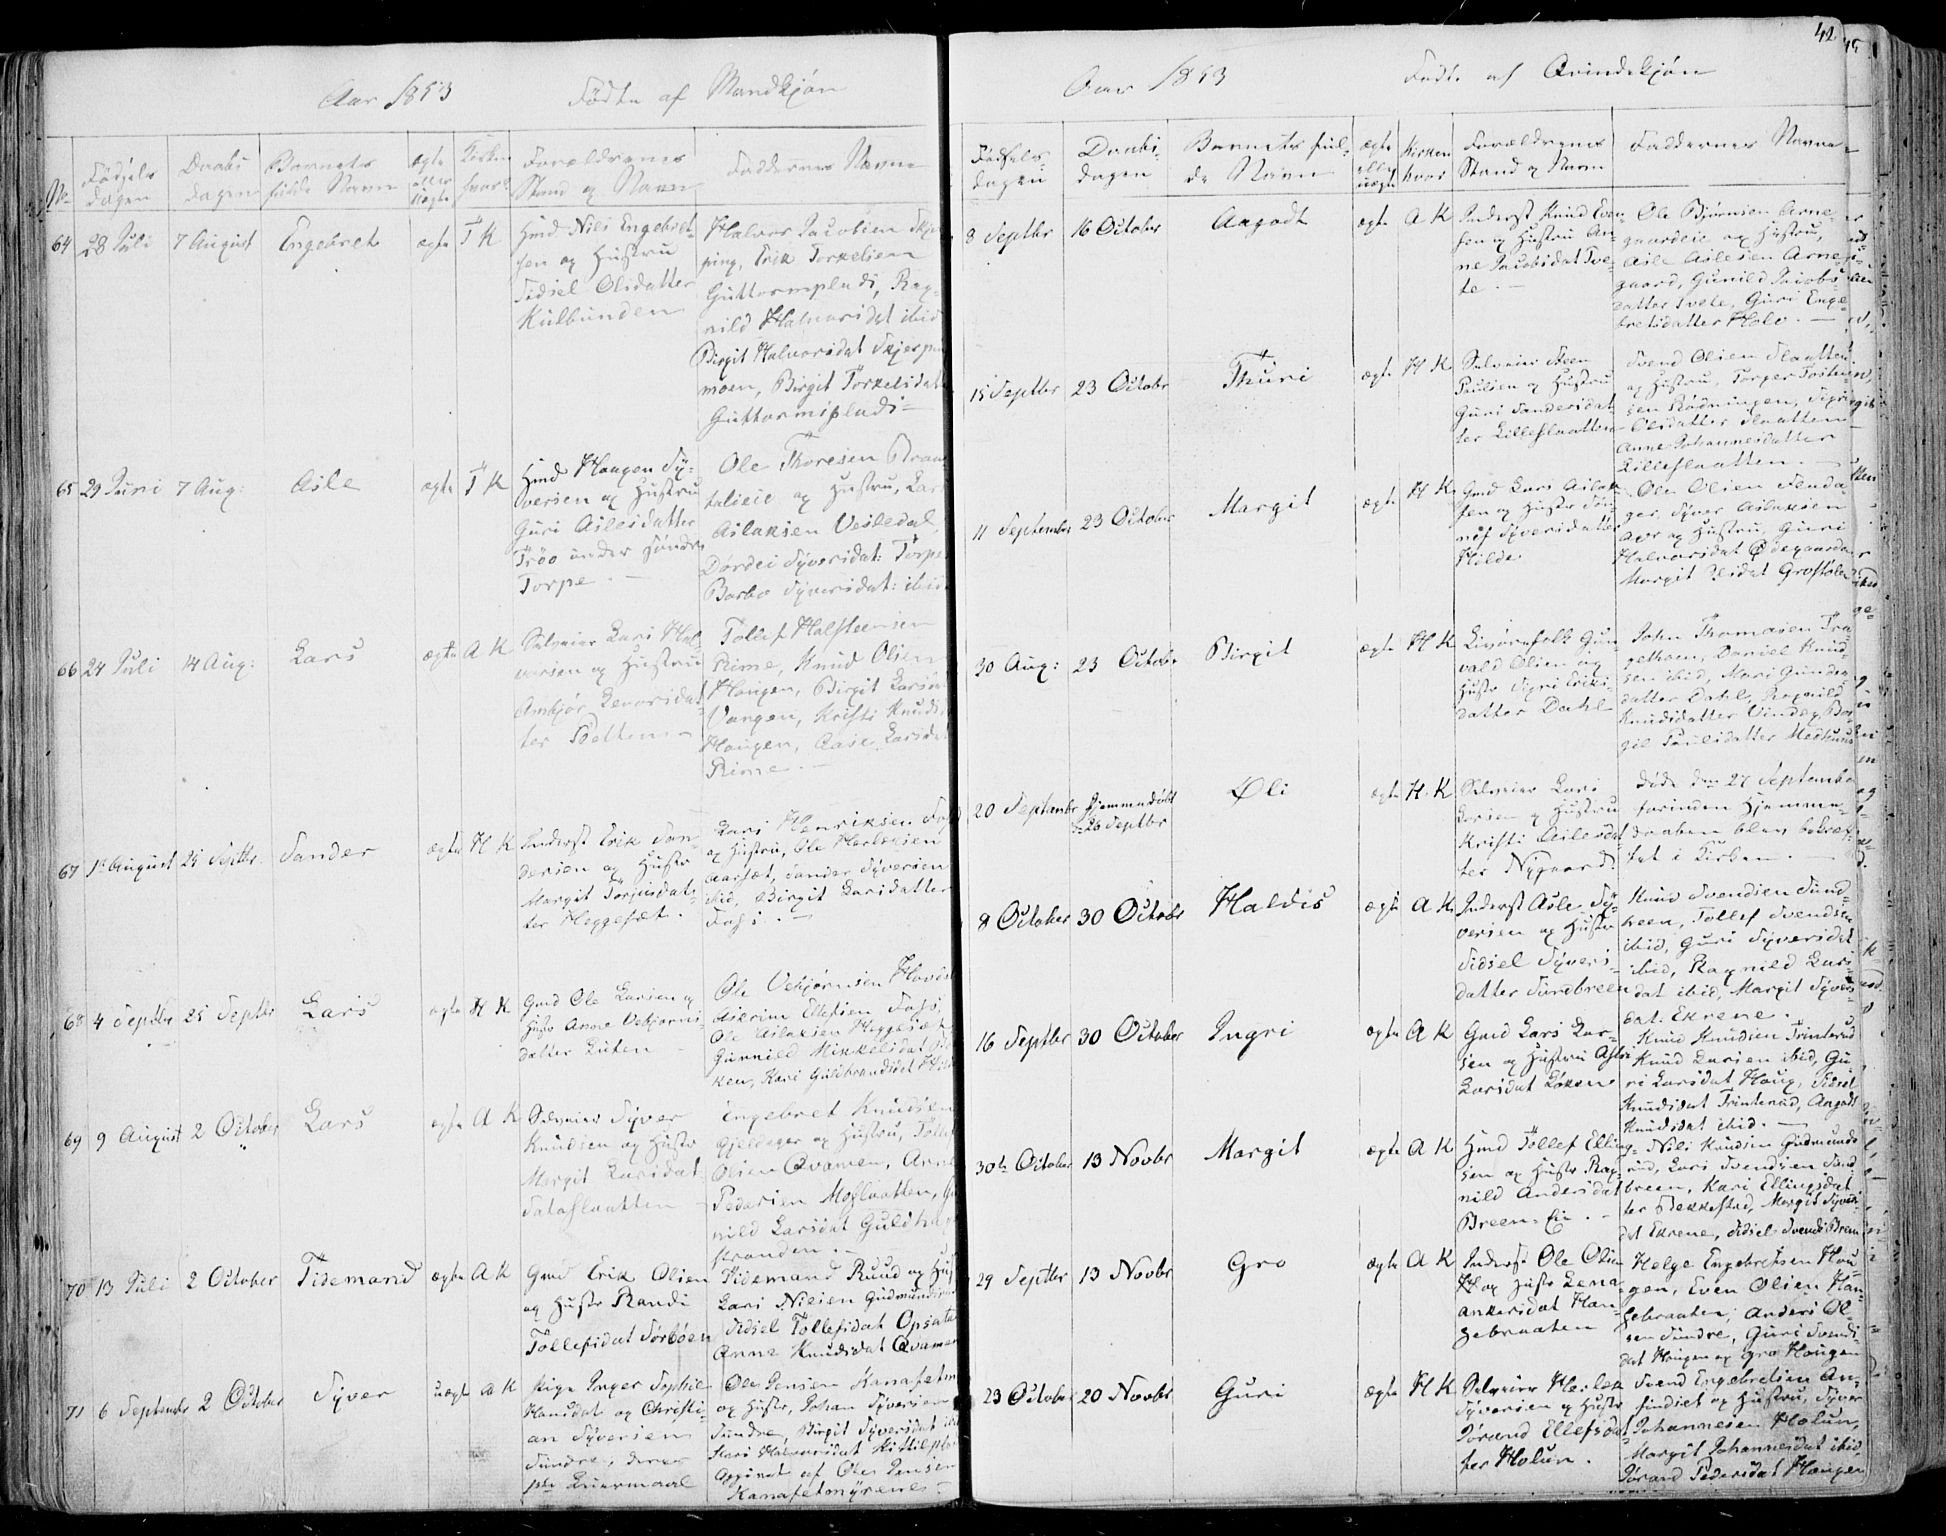 42
Aar 1853 Fødte af Mandkjøn
No
Fødsels
dagen
Daabs
dagen
Barnets
fulde Navn
ægte
eller
uægte
Kirken
hvor
Forældrenes
Stand og Navn
Faddernes Navne
64 28 Juli 7 August Engebret ægte T K
Gmd Nils Engebret-
sen og Hustru
Sidsel Olsdatter
Kulbunden
Halvor Jacobsen Skjer-
ping, Erik Torkelsen
Guttormsplads, Rag-
nild Halvorsdat ibid
Birgit Halvorsdat
moen, Birgit Torkelsdat
Guttormsplads
65 29 Juni 7 Aug: Asle ægte T K
Hmd Haagen Sy-
versen og Hustru
Guri Aslesdatter
Trøo under Søndre
Torpe.
Ole Thoresen
og Hustru, Lars
Aslaksen Vesledal,
Dordei Syversdat: Torpe
Barbo Syversdat: ibid
66 24 Juli 14 Aug: Lars ægte A K
Selveier Lars Hal-
vorsen og Hustru
Ambjør
ter
Tollef Halsteensen
Rime, Knud Olsen
Haugen, Birgit Larsdat
Vangen, Kristi Knudsdat
Haugen, Aase Larsdat
Rime.
67 1ste August 25 Septbr. Sander ægte H K
Inderst Erik San-
dersen og Hustr
Margit Torgersdat-
ter Heggeset.
Lars Henriksen
og Hustru, Ole Herbrandsen
Aasset, Sander Syversen
ibid, Birgit Larsdatter
68 4 Septbr 25 Septbr Lars ægte H K
Gmd Ole Larsen og
Hustr Anne Vebjørns-
datter Liten
Ole Vebjørnsen Hovde
Ellefsen
Ole Aslaksen Heggeset
Gunnild Mikkelsdat
ken, Kari Guldbrandsdat
69 9 August 2 October Lars ægte A K
Selveier Syver
Knudsen og Hustr
Margit Larsdat
Sataslaatten
Engebret Knudsen
Gjeldager og Hustru, Tollef
Olsen Qvamen, Arne
Pedersen Moslaatten, Gu
nild Larsdat Guldhags
stranden.
70 13 Juli 2 October Tidemand ægte A K
Gmd Erik Olsen
og Hustr Randi
Tollefsdat Sørbøen
Tidemand Ruud og Hust
Lars Nilsen Gudmundsrud
Sidsel Tollefsdat Opsata
Anne Knudsdat Qvamen
71 6 Septembr 2 October Syver uægte A K
Pige Inger Sophie
Hansdat og Christi-
an Syversen
Sundre, deres
1ste Leiermaal
Ole Jensen
og Hustr, Johan Syversen
Sundre, Birgit Syversdat ibid
Kari Halvorsdat
Opgivet af Ole Jensen
Aar 1853 Fødte af Qvindekjøn
Fødsels-
dagen
Daabs-
dagen
Barnets ful-
de Navn
ægte
eller
uægte
Kirken
hvor
Forældrenes
Stand og Navn
Faddernes Navne
8 Septbr 16 October Aagodt ægte A K
Inderst Knud Even-
sen og Hustru An-
ne Jacobsdat Tve-
te.
Ole Bjørnsen Arne-
gaardeie og Hustru,
Asle Aslesen Arne-
gaard, Gunild Jacobs-
datter Tvete, Guri Enge-
bretsdatter Holo.
15 Septbr 23 Octobr Thuri ægte H K
Selveier Steen
Paulsen og Hustru
Guri Sandersdat-
ter Lilleslaatten
Svend Olsen Slaatten
og Hustru, Torger Torsten-
sen Rødningen, Sigri
Olsdatter Slaatten
Anne Johannesdatter
Lilleslaatten.
11 September 23 October Margit ægte H K
Gmd Lars Aslak-
sen og Hustr
Syversdatter
Hilde.
Ole Olsen
ger, Syver Aslaksen
og Hustru, Guri
Halvorsdat Ødegaarden
Margit Olsdat Grostølen
30 Aug: 23 Octobr Birgit ægte H K
Gun-
vald Olsen og
Hustr Sigri Eriks-
datter Dahl
John Thomasen
Daniel Knud-
sen ibid, Mari Gunders-
datter Dahl, Ragnild
Knudsdatter
Paulsdatter
20 Septembr Hjemmedøbt
26 Septbr Øli ægte H K
Selveier Lars
Larsen og Hustru
Kristi Aslesdat-
ter Nygaard
Døde den 27 September
forinden Hjemme-
daaben blev bekræf-
tet i Kirken.
8 October 30 Octobr Haldis ægte A K
Inderst Asle Sy-
versen og Hustr
Sidsel Syvers-
datter Sundreeen
Knud Svendsen Sund-
breen, Tollef Svendsen
ibid, Guri Syversdat
ibid, Ragnild Lars-
dat ibid, Margit Syvers-
dat. Ekrene.
16 Septbr 30 October Ingri ægte A K
Gmd Lars Lar-
sen og Hustru Astri
Larsdat Løkens
Knud Knudsen Trinterud
Knud Larsen ibid, Gu-
ri Larsdat Haug, Sidsel
Knudsdat Trinterud, Aagodt
Knudsdat ibid.
30te October 13 Novbr Margit ægte A K
Hmd Tollef Elling-
sen og Hustr Rag-
nild Andersdat
Breen-Eie.
Nils Knudsen Gudmunds-
rud, Lars Svendsen Sund-
breen, Kari Ellingsdat-
ter Bekkestad, Margit Syvers-
dat Ekrene, Sidsel Svendsd Breen
29 Septbr 13 Novbr Gro ægte A K
Inderst Ole Olsen
og Hustr Lena
Ankersdat Han-
sebraaten
Helge Engebretsen Hou-
gen, Even Olsen Han-
sebraaten, Anders Ol-
sen Sundre, Guri Svends-
dat Haugen og Gro Haugen
23 October 20 Novbr Guri ægte H K
Selveier Herlek
Syversen og Hustr
Jørand Ellefsdat-
ter Holun.
Svend Engebretsen An-
findset og Hustru, Syver
Johannesen Holun,
Margit Johannesdat ibid
Jørand Pedersdat Haugen